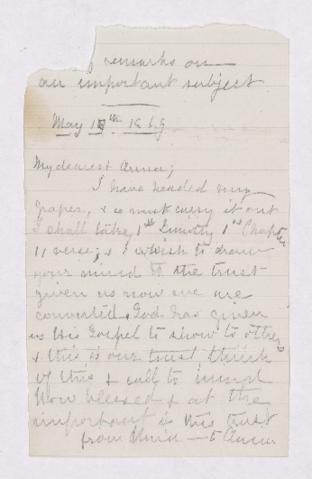 remarks on
an important subject
May 18th 1869
My dearest Anna;
I have headed my
paper, & so must carry it out
I shall take 1st Timothy 1st Chapter
11 verse; & I wish to draw
your mind to the trust
given us now we are
converted. God has given
us His Gospel to show to others
& this is our trust think
of this & call to mind
How blessed & at the
important is this trust
from Union — to Anna